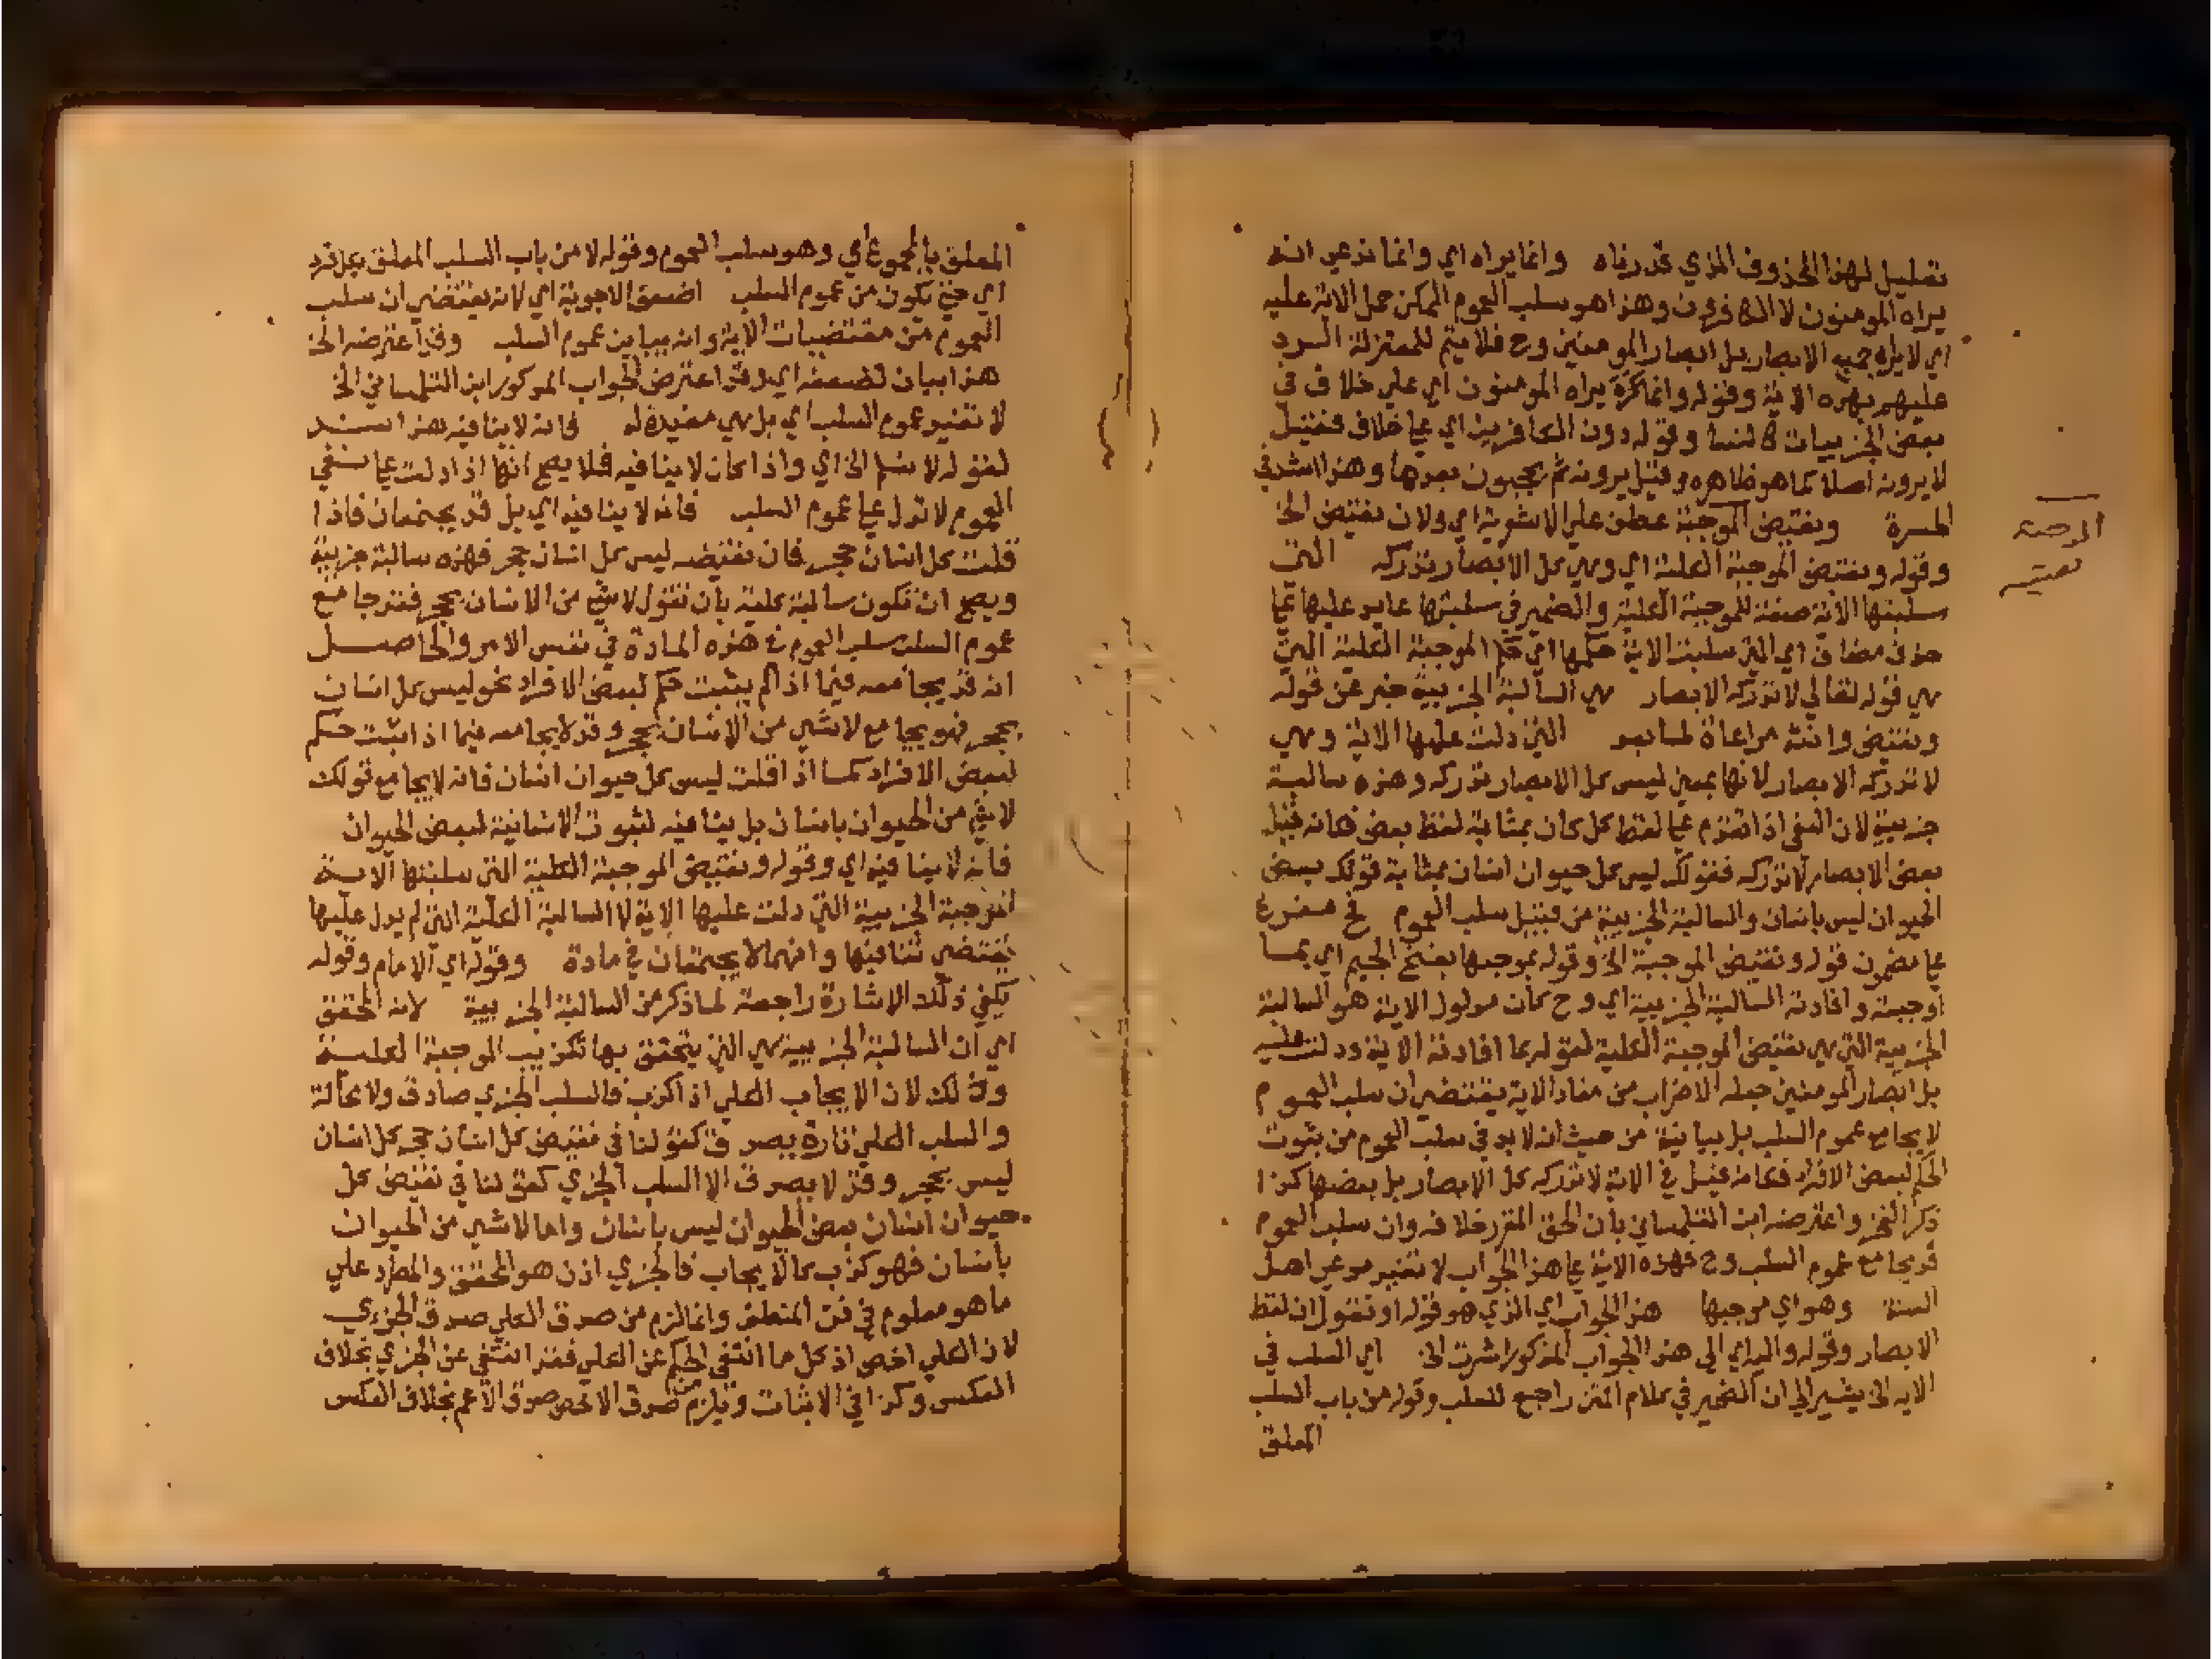 تعليل لهذا المحذوف الذي قدرناه وانما يراه اي وانما ندعي انه
يراه المومنون لا الكافرون وهذا هو سلب العموم الممكن حمل الاية عليه
اي لا يراه جميع الابصار بل ابصار المومنين وح فلا يتم للمعتزلة الرد
عليهم بهذه الاية وقوله وانما يراه المومنون اي على خلاف في
بعض الجزييات كالنسا وقوله دون الكافرين اي علي خلاف فقيل
لا يرونه اصلا كما هو ظاهره وقيل يرونه ثم يحجبون بعدها وهذا اشد في
الحسرة ونقيض الموجبة عطف علي الاشوية اي ولان نقيض الخ
وقوله ونقيض الموجبة الكلية اي وهي كل الابصار تدركه التي
سلبتها الاية صفة للموجبة الكلية والضمير في سلبتها عايد عليها علي
حذف مضاف اي التي سلبت الاية حكمها اي حكم الموجبة الكلية التي
هي قوله تعالي لا تدركه الابصار هي السالبة الجزيية خبر عن قوله
ونقيض وانثه مراعاة لما بعد التي دلت عليها الاية وهي
لا تدركه الابصار لانها بمعني ليس كل الابصار تدركه وهذه سالبة
جزيية لان النفي اذا تقدم علي لفظ كل كان بمثابة لفظ بعض فكانه قيل
بعض الابصار لا تدركه فقولك ليس كل حيوان انسان بمثابة قولك بعض
الحيوان ليس بانسان والسالبة الجزيية من قبيل سلب العموم فح مفرع
علي مضمون قوله ونقيض الموجبة الخ وقوله بموجبها بفتح الجيم اي بما
اوجبته وافادته السالبة الجزيية اي وح كان مدلول الاية هو السالبة
الجزيية التي هي نقيض الموجبة الكلية لقوله بما افادته الاية ودلت عليه
بل ابصار المومنين جعله الاضراب من مفاد الاية يقتضي ان سلب العموم
لا يجامع عموم السلب بل يباينه من حيث انه لا بد في سلب العموم من ثبوت
الحكم لبعض الافراد فكانه قيل في الاية لا تدركه كل الابصار بل بعضها كذا
ذكر الفخر واعترضه ابن التلمساني بان الحق المقرر خلافه وان سلب العموم
قد يجامع عموم السلب وح فهذه الاية علي هذا الجواب لا تفيد مدعي اهل
السنة وهو اي موجبها هذا الجواب اي الذي هو قوله او نقول ان لفظ
الابصار وقوله والي اي الي هذا الجواب المذكور اشرت الخ اي السلب في
الايه الخ يشير الي ان الضمير في كلام المتن راجع للسلب وقوله من باب السلب
المعلق
الموجبة
نقيض
المعلق بالمجموع اي وهو سلب العموم وقوله لا من باب السلب المعلق بكل فرد
اي حتي تكون من عموم السلب اضعف الاجوبة اي لانه يقتضي ان سلب
العموم من مقتضيات الاية وانه يباين عموم السلب وقد اعترضه الخ
هذا بيان لضعفه اي وقد اعترض الجواب المذكور ابن التلمساني الخ
لا تفيد عموم السلب اي بل هي مفيدة له فانه لا ينافيه هذا سند
لقوله لا نسلم الخ اي واذا كان لا ينافيه فلا يصح انها اذا دلت علي نفي
العموم لا تدل علي عموم السلب فانه لا ينافيه اي بل قد يجتمعان فاذا
قلت كل انسان حجر فان نقيضه ليس كل انسان حجر فهذه سالبة جزيية
ويصح ان تكون سالبة كلية بان تقول لا شي من الانسان بحجر فقد جامع
عموم السلب سلب العموم في هذه المادة في نفس الامر والحاصل
انه قد يجامعه فيما اذا لم يثبت حكم لبعض الافراد نحو ليس كل انسان
بحجر فهو يجامع لا شي من الانسان بحجر وقد لا يجامعه فيما اذا ثبت حكم
لبعض الافراد كما اذا قلت ليس كل حيوان انسان فانه لا يجامع قولك
لا شي من الحيوان بانسان بل ينافيه لثبوت الانسانية لبعض الحيوان
فانه لا ينافيه اي وقوله ونقيض الموجبة الكلية التي سلبتها الاية
الموجبة الجزيية التي دلت عليها الاية لا السالبة الكلية التي لم يدل عليها
يقتضي تنافيها وانهما لا يجتمعان في مادة وقوله اي الامام وقوله
يكفي ذلك الاشارة راجعة لما ذكر من السالبة الجزيية لانه المحقق
اي ان السالبة الجزيية هي التي يتحقق بها تكذيب الموجبة الكلية
وذلك لان الايجاب الكلي اذا كذب فالسلب الجزي صادق ولا محالة
والسلب الكلي تارة يصدق كقولنا في نقيض كل انسان حجر كل انسان
ليس بحجر وقد لا يصدق الا السلب الجزي كقولنا في نقيض كل
حيوان انسان بعض الحيوان ليس بانسان واما لا شي من الحيوان
بانسان فهو كذب كالايجاب فالجزي اذن هو المحقق والمطرد علي
ما هو معلوم في فن المنطق وانما لزم من صدق الكلي صدق الجزءي
لان الكلي اخص اذ كل ما انتفي الحكم عن الكلي فقد انتفي عن الجزي بخلاف
العكس وكذا في الاثبات ويلزم من صدق الاخص صدق الاعم بخلاف العكس